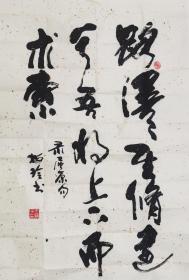 路漫漫其脩遠
兮吾将上下而
求索
录屈原句
书